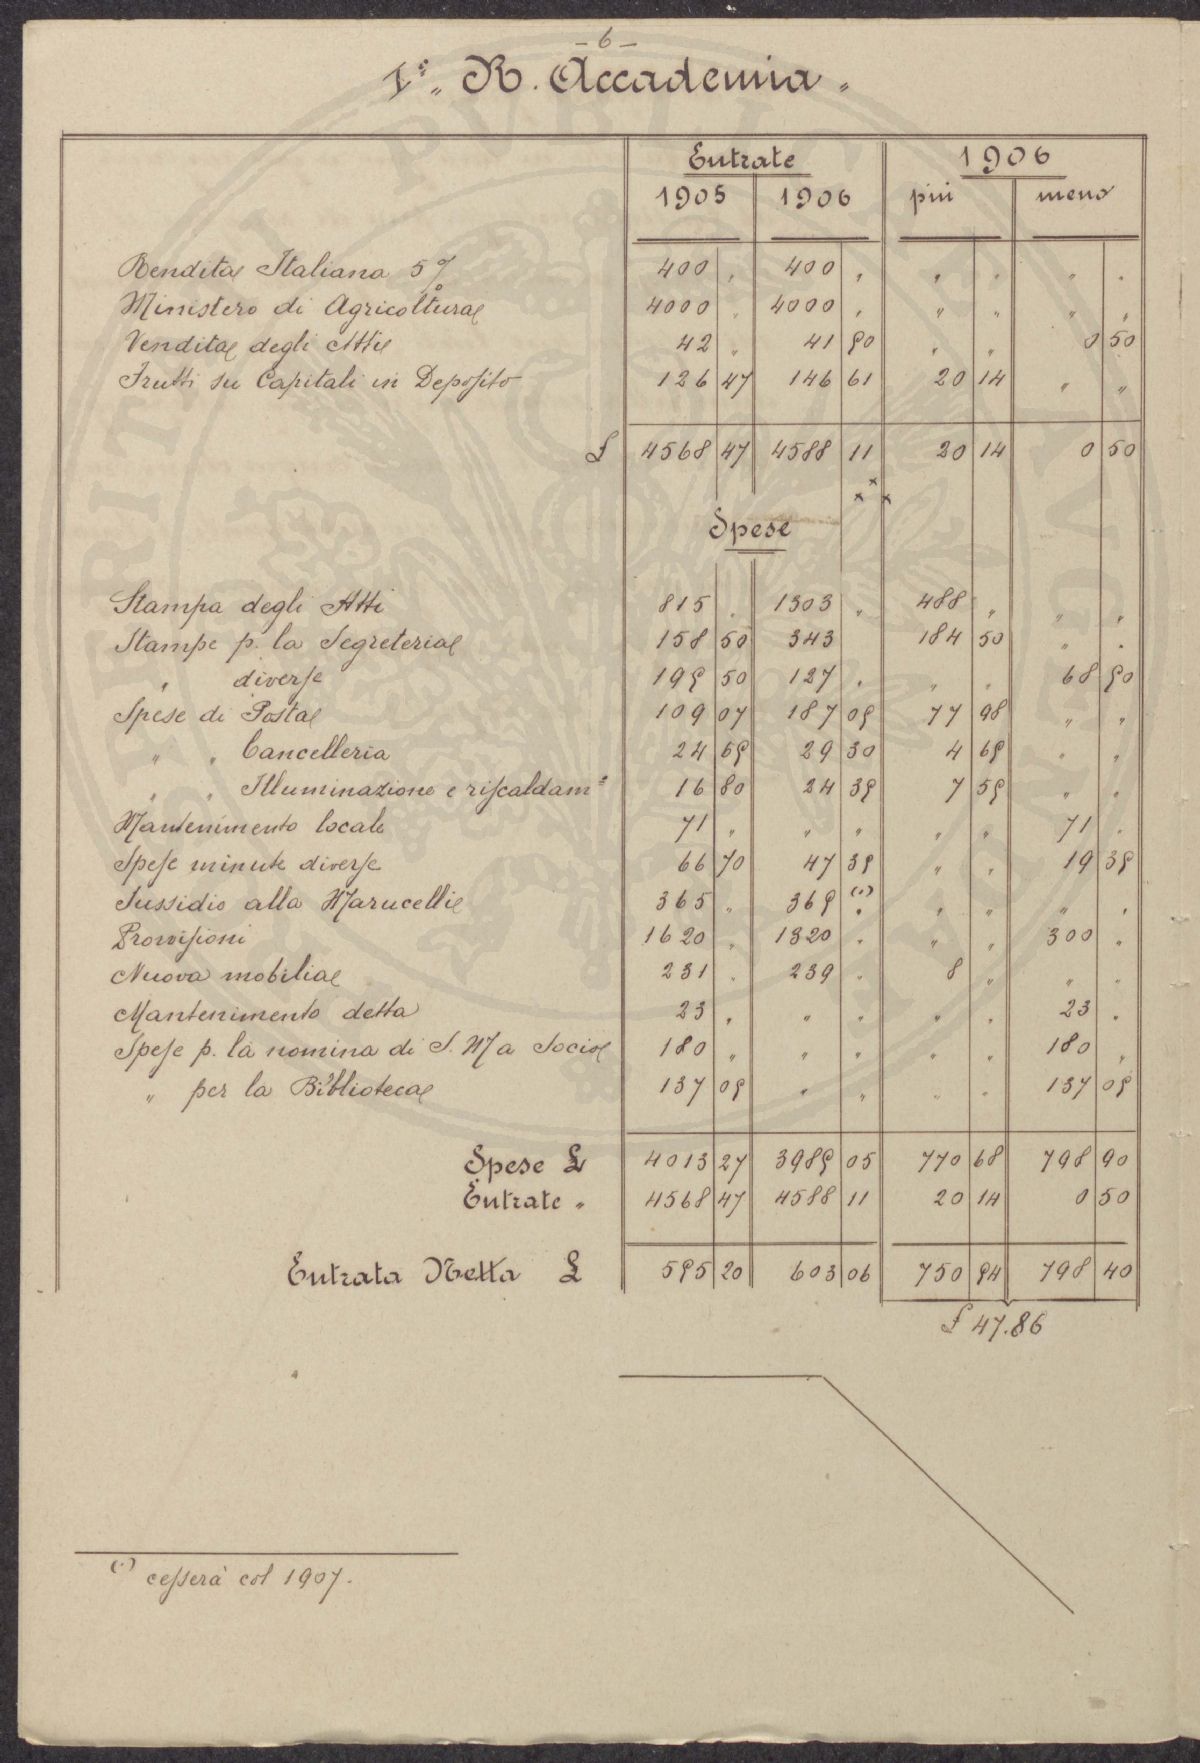 - 6 -
Iº. „ R. Accademia „
Entrate 1906
1905 1906 più meno
Rendita Italiana 5 % 400 „ 400 „ „ „ „ „
Ministero di Agricoltura 4000 „ 4000 „ „ „ „ „
Vendita degli Atti 42 „ 41 50 „ „ 0 50
Frutti su Capitali in Deposito 126 47 146 61 20 14 „ „
£ 4568 47 4588 11 20 14 0 50
Spese
Stampa degli Atti 815 „ 1303 „ 488 „ „ „
Stampe p. la Segreteria 158 50 343 184 50 „ „
„ diverse 195 50 127 „ „ „ 68 50
Spese di Posta 109 07 187 05 77 98 „ „
„ „ Cancelleria 24 65 29 30 4 65 „ „
„ „ Illuminazione e riscaldamº 16 80 24 35 7 55 „ „
Mantenimento locale 71 „ „ „ „ „ 71 „
Spese minute diverse 66 70 47 35 „ „ 19 35
Sussidio alla Marucelli 365 „ 365 (·) „ „ „ „ „
Provvisioni 1620 „ 1320 „ „ „ 300 „
Nuova mobilia 231 „ 239 „ 8 „ „ „
Mantenimento detta 23 „ „ „ „ „ 23 „
Spese p. la nomina di S. M a Socio 180 „ „ „ „ „ 180 „
„ per la Biblioteca 137 05 „ „ „ „ 137 05
Spese £ 4013 27 3985 05 770 68 798 90
Entrate „ 4568 47 4588 11 20 14 0 50
Entrata Netta £ 555 20 603 06 750 54 798 40
£ 47.86
(·) cesserà col 1907.